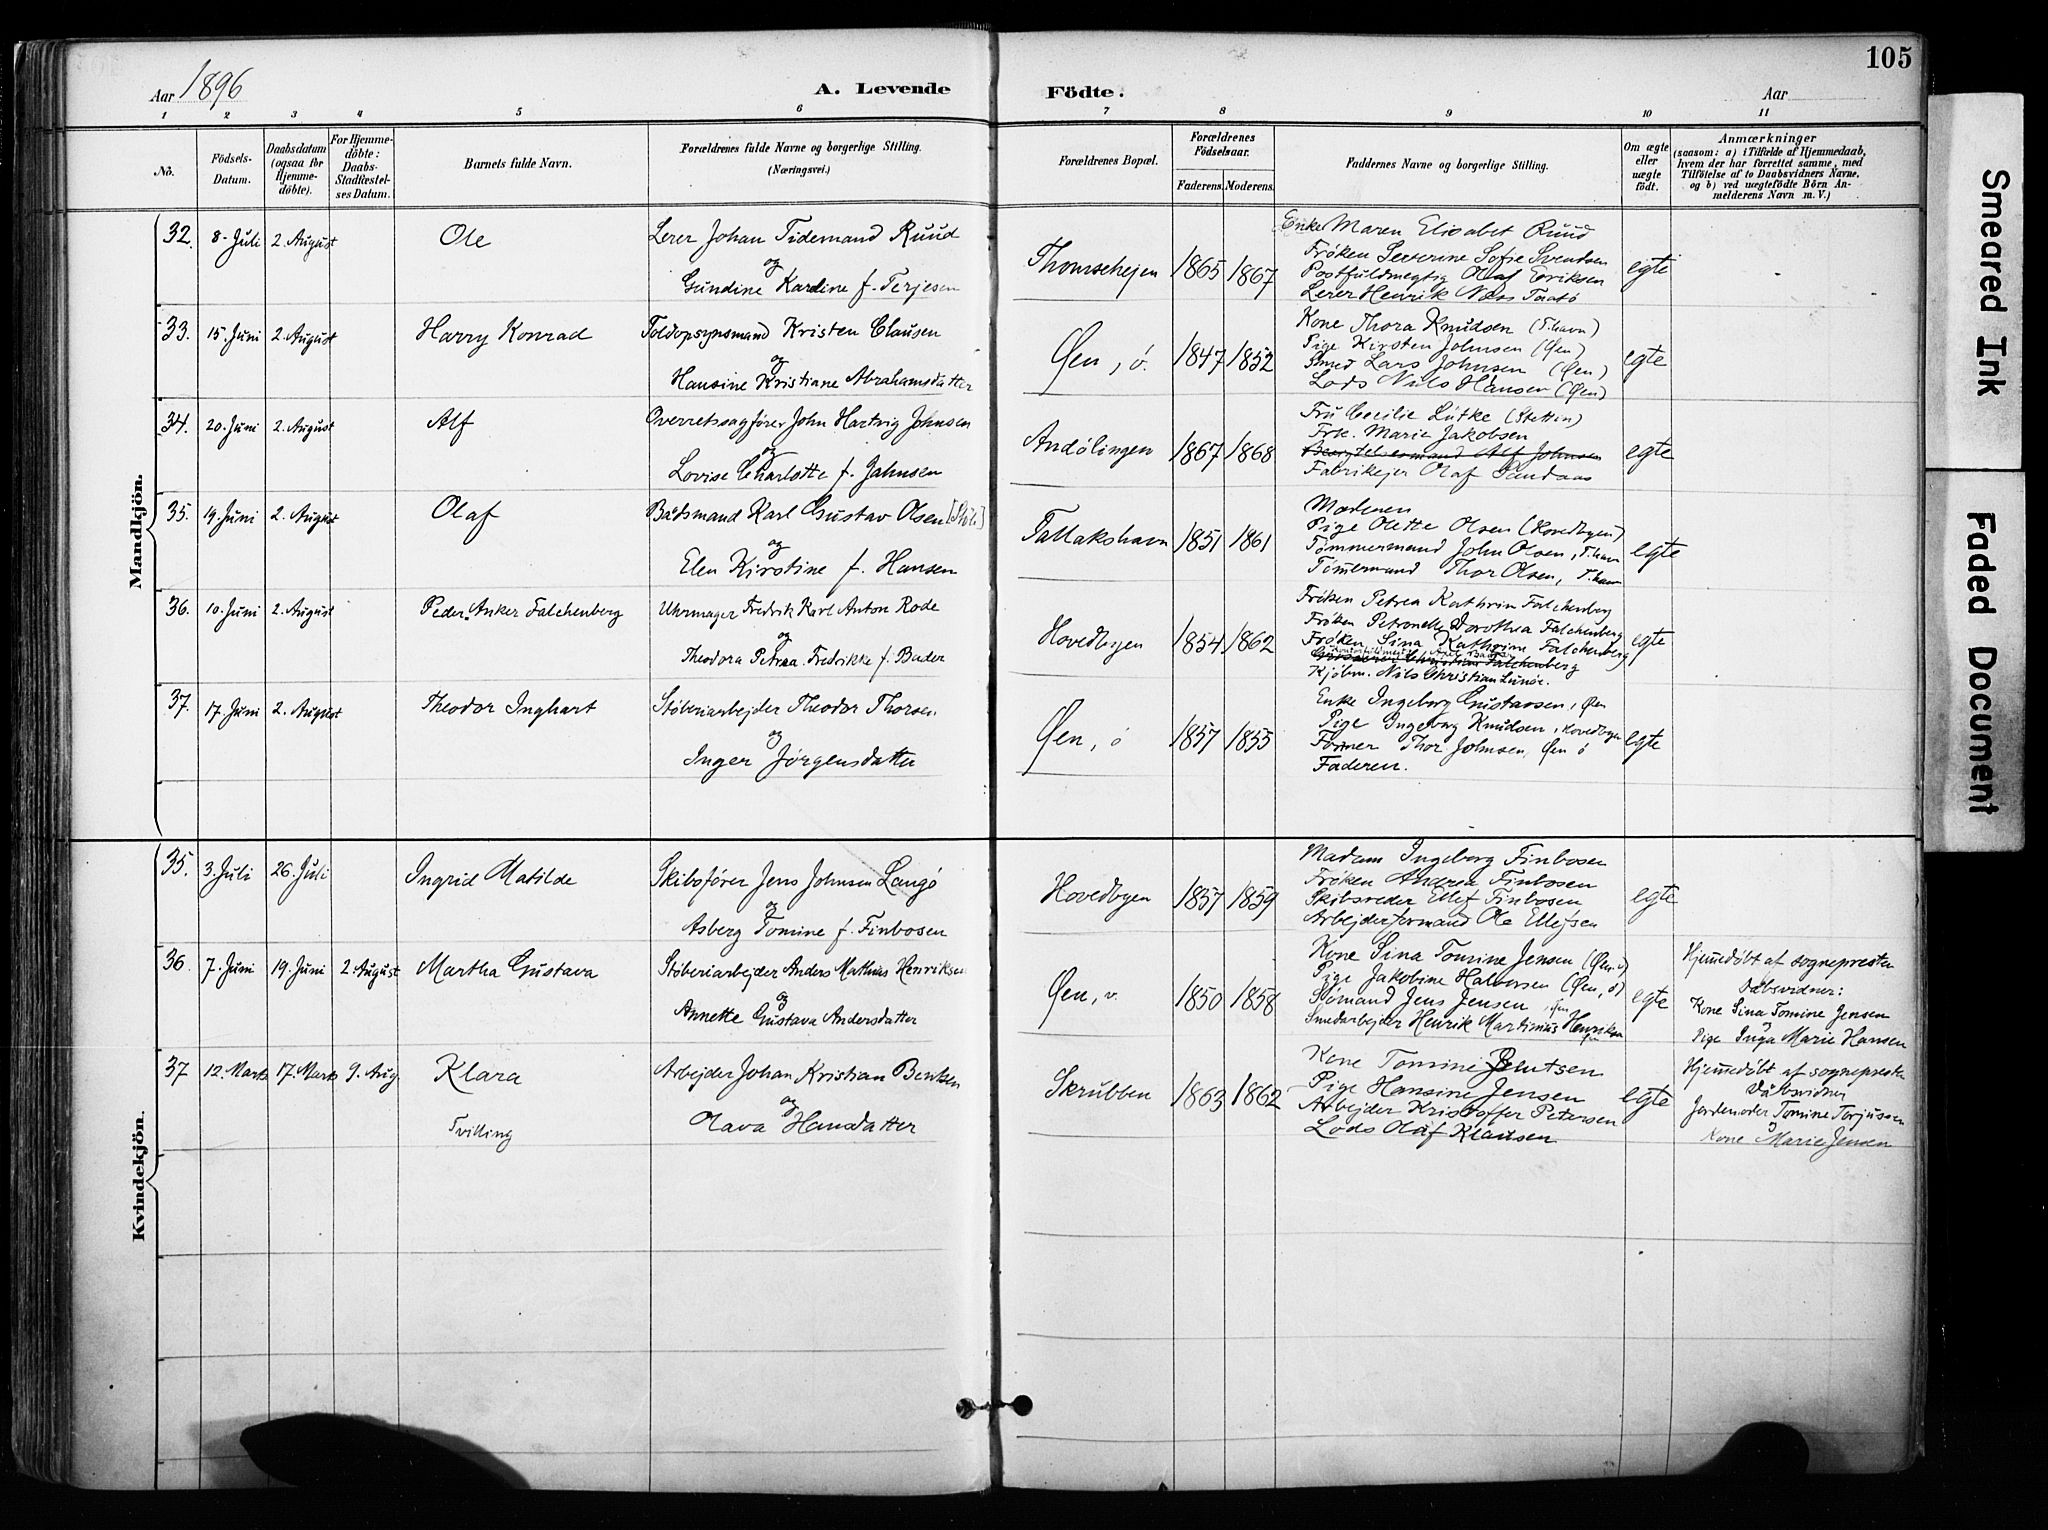 105
Aar 1896
A. Levende
Födte.
Aar
1 2 3 4 5 6 7 8 9 10 11
No.
Födsels-
Datum.
Daabsdatum
(ogsaa for
Hjemme-
döbte).
For Hjemme-
döbte:
Daabs-
Stadfæstel-
ses Datum.
Barnets fulde Navn.
Forældrenes fulde Navne og borgerlige Stilling.
(Næringsvei.)
Forældrenes Bopæl.
Forældrenes
Födselsaar.
Faderens. Moderens.
Faddernes Navne og borgerlige Stilling.
Om ægte
eller
uægte
födt.
Anmærkninger
(saasom: a) i Tilfælde af Hjemmedaab,
hvem der har forrettet samme, med
Tilföielse af to Daabsvidners Navne,
og b) ved uægtefödte Börn An-
melderens Navn m. V.)
Mandkjön.
32. 8. Juli 2. August Ole
Lerer Johan Tidemand Ruud
og
Gundine Kardine f. Terjesen
Thomsehejen 1865 1867
Enke Maren Elisabet Ruud
Frøken Severine Sofie Svendsen
Postfuldmegtig Olaf Eeriksen
Lerer Henrik Næs Taatø
egte
33. 15. Juni 2. August Harry Konrad
Toldopsynsmand Kristen Clausen
og
Hansine Kristiane Abrahamsdatter
Øen, ö. 1847 1852
Kone Thora Knudsen (T.havn)
Pige Kirsten Johnsen (Øen)
Smed Lars Johnsen (Øen)
Lods Nils Hansen (Øen)
egte
34. 20. Juni 2. August Alf
Overretssagfører John Hartvig Johnsen
og
Lovise Charlotte f. Jahnsen
Andölingen 1867 1868
Fru Cecilie Lütke (Stettin)
Frk. Marie Jakobsen
Alf Johnsen
Fabrikejer Olaf Sandaas
egte
35. 19. Juni 2. August Olaf
Bådsmand Karl Gustav Olsen
og
Elen Kirstine f. Hansen
Tallakshavn 1851 1861
Moderen
Pige Olette Olsen (Hovedbyen)
Tømmermand John Olsen, T.havn
Tømermand Thor Olsen, T.havn
egte
36. 10. Juni 2. August Peder Anker Falchenberg
Uhrmager Fredrik Karl Anton Rode
og
Theodora Petrea Fredrikke f. Bader
Hovedbyen 1854 1862
Frøken Petrea Kathrin Falchenberg
Frøken Petronelle Dorothea Falchenberg
Frøken Sina Kathrine Falchenberg
Christian Falchenberg
Kjøbm. Nils Christian Lunøe.
egte
37. 17. Juni 2. August Theodor Inghart
Støberiarbejder Theodor Thorsen
og
Inger Jørgensdatter
Øen, ö 1857 1855
Enke Ingeborg Gustavsen, Øen
Pige Ingeborg Knudsen, Hovedbyen
Former Thor Johnsen, Øen ö
Faderen.
egte
Kvindekjön.
35. 3. Juli 26. Juli Ingrid Matilde
Skibsfører Jens Johnsen Langö
og
Asberg Tomine f. Finbosen
Hovedbyen 1857 1859
Madam Ingeborg Finbosen
Frøken Andrea Finbosen
Skibsreder Ellef Finbosen
Arbejderformand Ole Ellefsen
egte
36. 7. Juni 19. Juni 2. August Martha Gustava
Støberiarbejder Anders Mathias Henriksen
og
Annette Gustava Andersdatter
Øen, v. 1850 1858
Kone Sina Tomine Jensen (Øen, v)
Pige Jakobine Halvorsen (Øen, ö)
Sømand Jens Jensen, Øen
Smedarbejder Henrik Martinius Henriksen
egte
Hjemmedøbt af sognepresten
Dåbsvidner:
Kone Sina Tomine Jensen
og
Pige Inga Marie Hansen
37 12. Marts 17. Marts 9. Aug. Klara
Tvilling
Arbejder Johan Kristian Bentsen
og
Olava Hansdatter
Skrubben 1863 1862
Kone Tomine Bentsen
Pige Hansine Jensen
Arbejder Kristoffer Petersen
Lods Olaf Klausen
egte
Hjemmedøbt af sognepresten
Dåbsvidner
Jordemoder Tomine Torjussen
og
Kone Marie Jensen
Smeared Ink
Faded Document